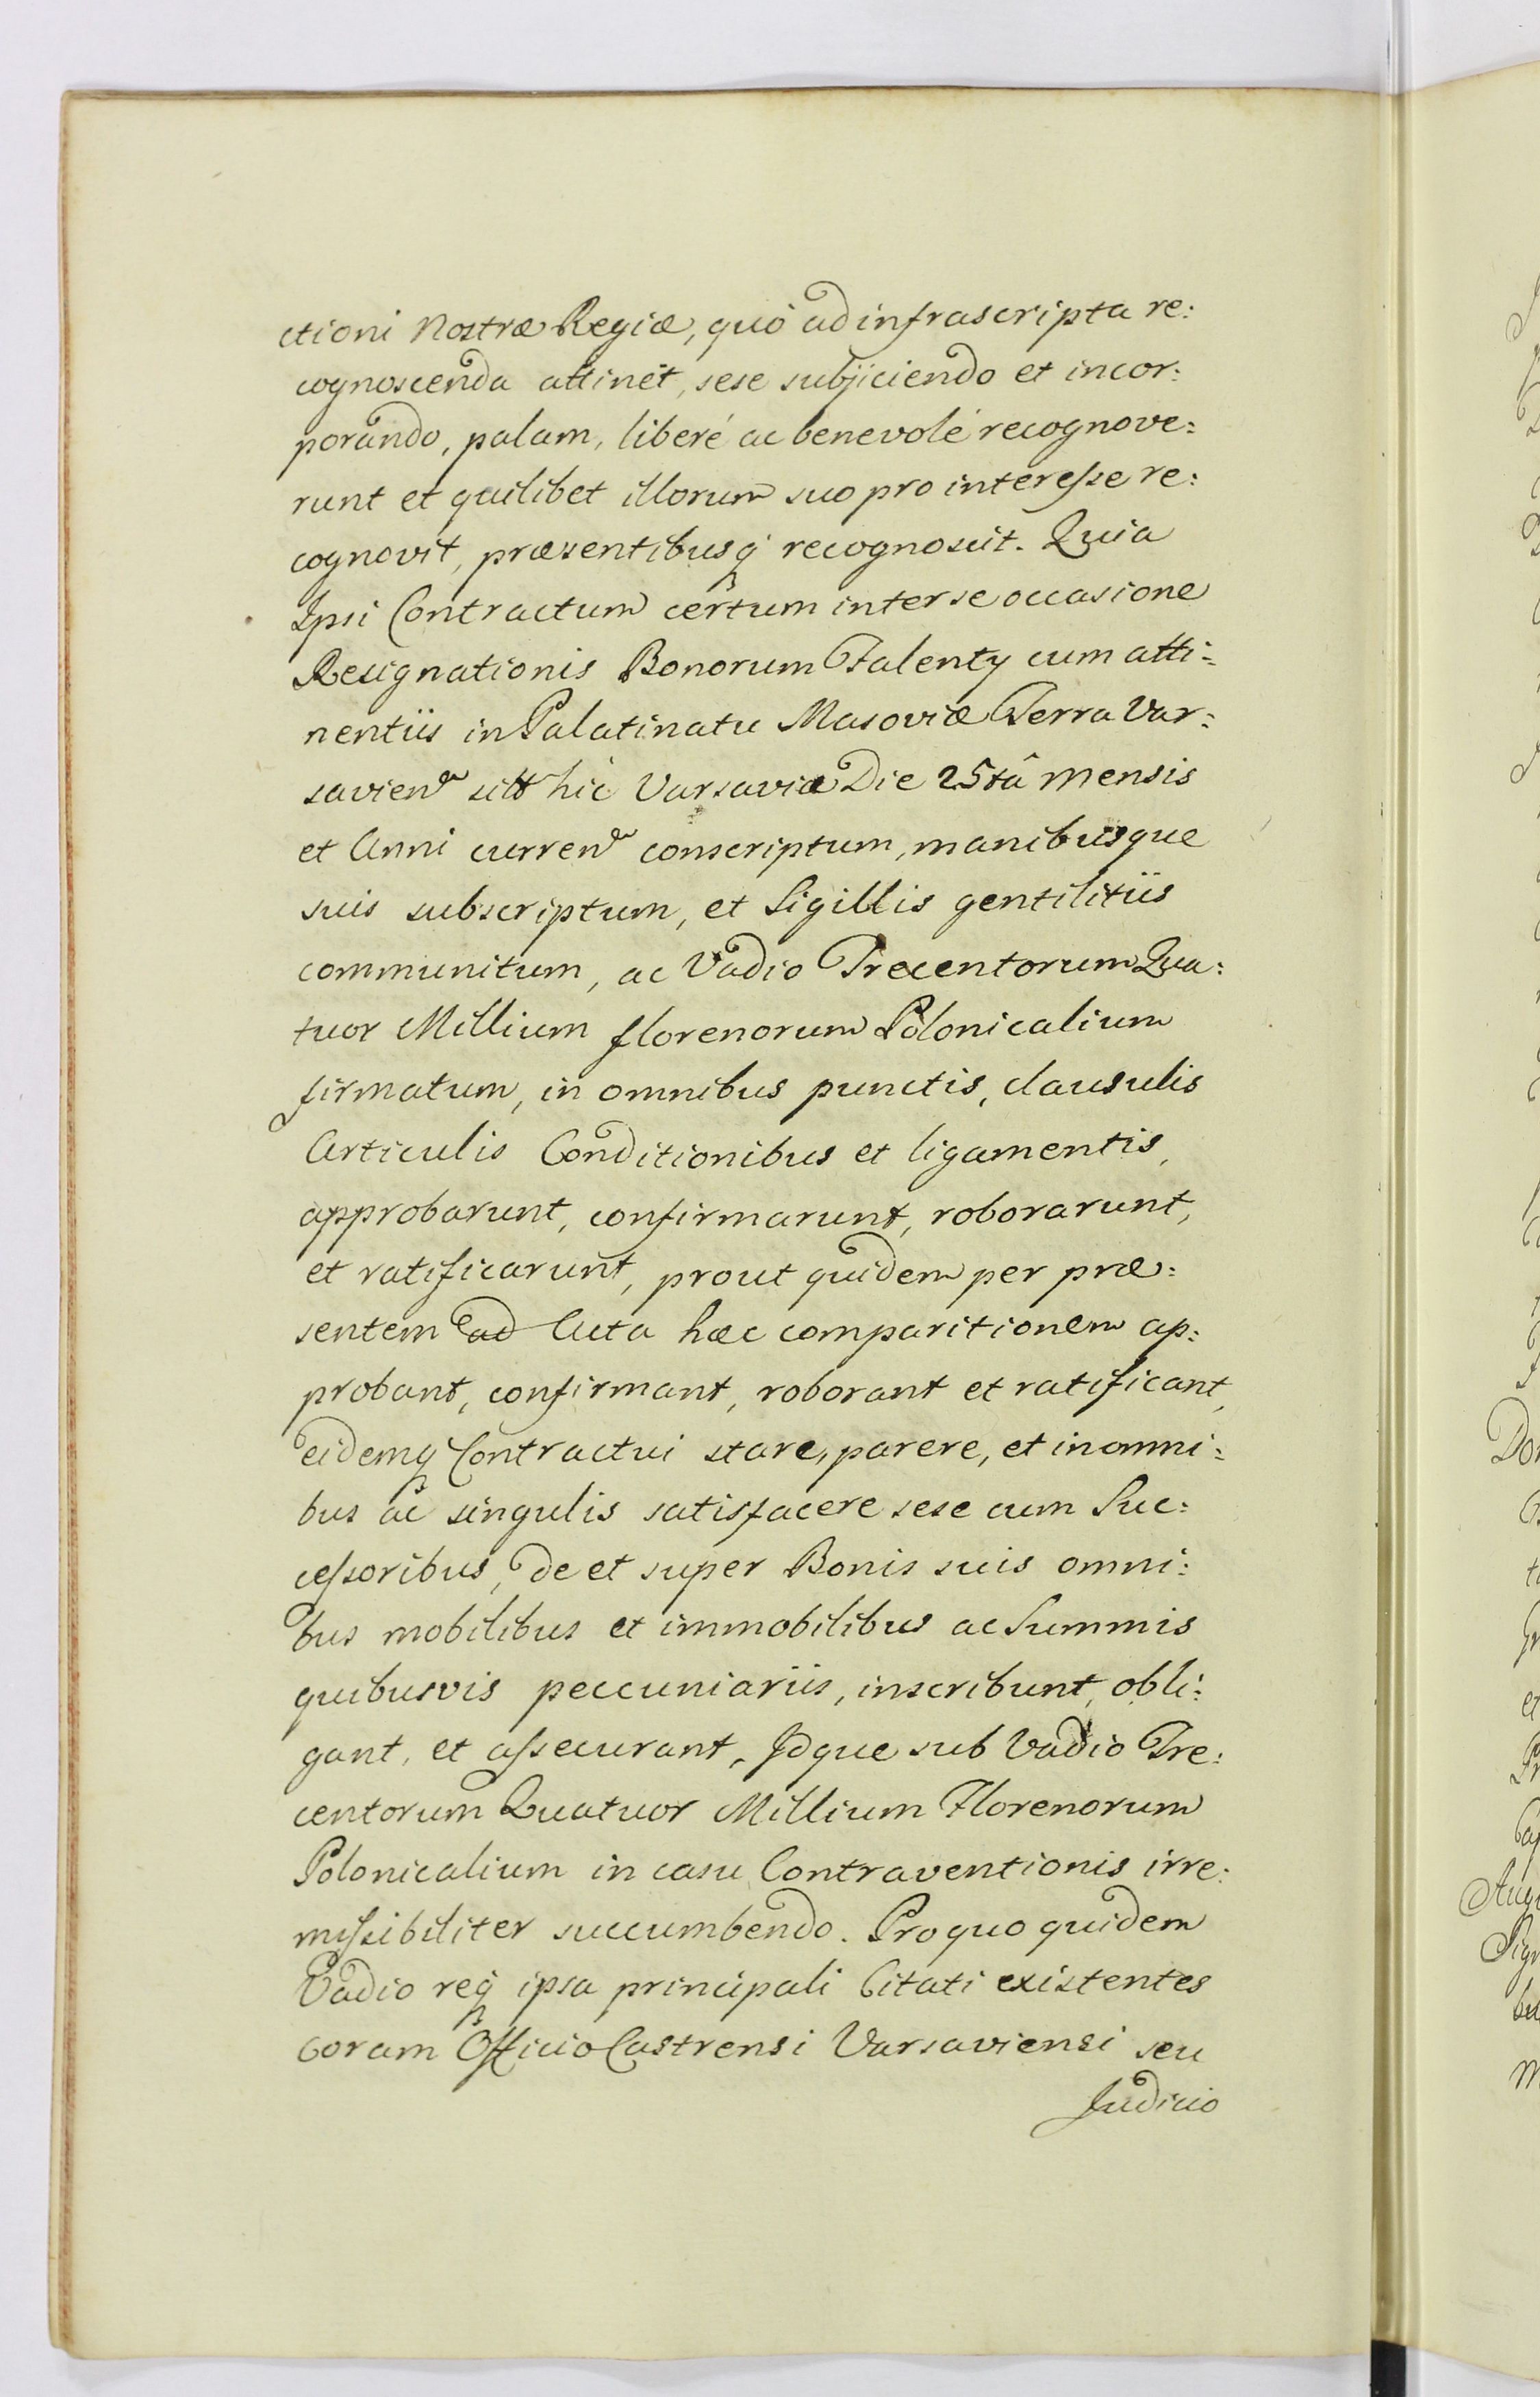 ctioni Nostræ Regiæ, quò ad infrascripta re:
cognoscenda attinet, sese subjiciendo et incor:
porando, palam, liberé ac benevolé recognove:
runt et quilibet illorum suo pro interesse re:
cognovit, præsentibusq́ recognoscit. Quia
Ipsi Contractum certum inter se occasione
Resignationis Bonorum Falenty cum atti:
nentiis in Palatinatu Masoviæ Terra Var:
savien sitt hic Varsaviæ Die 25tâ Mensis
et Anni curren conscriptum, manibusque
suis subscriptum, et Sigillis gentilitiis
communitum, ac Vadio Trecentorum Qua:
tuor Millium florenorum Polonicalium
firmatum, in omnibus punctis, clausulis
Articulis Conditionibus et ligamentis,
approbarunt, confirmarunt, roborarunt,
et ratificarunt, prout quidem per præ:
sentem ad Acta hæc comparitionem ap:
probant, confirmant, roborant et ratificant,
eidemq Contractui stare, parere, et in omni:
bus ac singulis satisfacere sese cum Suc:
cessoribus, de et super Bonis suis omni:
bus mobilibus et immobilibus ac Summis
quibusvis peccuniariis, inscribunt, obli:
gant, et assecurant, Idque sub Vadio Tre:
centorum Quatuor Millium Florenorum
Polonicalium in casu Contraventionis irre:
missibiliter succumbendo. Pro quo quidem
Vadio req́ ipsa principali Citati existentes
coram Officio Castrensi Varsaviensi seu
Judicio